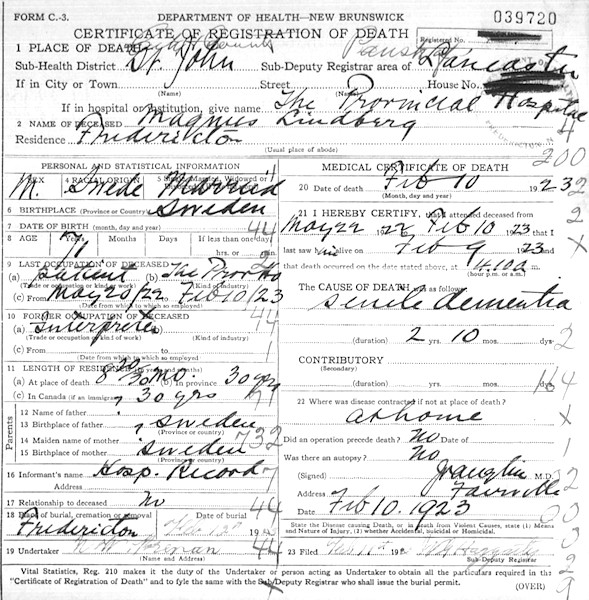 FORM C-3.
DEPARTMENT OF HEALTH—NEW BRUNSWICK
039720
CERTIFICATE OF REGISTRATION OF DEATH
Registered No.
1 PLACE OF DEATH County Parish of
Sub-Health District St. John Sub-Deputy Registrar area of Lancaster
If in City or Town Street House No.
(Name) (Name)
If in hospital or institution, give name The Provincial Hospital
2 NAME OF DECEASED Magnus Lindberg
Residence Fredericton
(Usual place of abode)
200
PERSONAL AND STATISTICAL PARTICULARS
SEX 4 RACIAL ORIGIN 5 Single, Married, Widowed or
M. Swede Married
6 BIRTHPLACE (Province or Country) Sweden
7 DATE OF BIRTH (month, day and year) 44
8 AGE 71 Years Months Days If less than one day
hrs. or min.
9 LAST OCCUPATION OF DECEASED
(a) patient (b) The Prov Ho
(Trade or occupation or kind of work) (Kind of industry)
(c) From May 20/22 to Feb 10/23
(Date from which to which so employed)
10 FORMER OCCUPATION OF DECEASED
(a) Interpreter (b)
(Trade or occupation or kind of work) (Kind of industry)
(c) From to
(Date from which to which so employed)
11 LENGTH OF RESIDENCE
(a) At place of death 8 20/30 mo. (b) in province 30 yrs
(c) In Canada (if an immigrant) 30 yrs
Parents
12 Name of father
13 Birthplace of father Sweden
(Province or country)
14 Maiden name of mother
15 Birthplace of mother Sweden
(Province or country)
732
16 Informant's name Hosp. Record
Address
17 Relationship to deceased no
18 Place of burial, cremation or removal Date of burial
Fredericton
44
19 Undertaker
(Name and Address)
MEDICAL CERTIFICATE OF DEATH
20 Date of death Feb 10 1923
(Month, day and year)
21 I HEREBY CERTIFY, that I attended deceased from
May 22 1922 to Feb 10 1923 that I
last saw him alive on Feb 9 1923
and that death occurred on the date stated above, at 4.10 a
(hour p.m. or a.m.)
The CAUSE OF DEATH was as follows:
senile dementia
(duration) 2 yrs. 10 mos. ds.
CONTRIBUTORY
(Secondary)
(duration) yrs. mos. ds.
22 Where was disease contracted if not at place of death?
at home
Did an operation precede death? No Date of
Was there an autopsy? No
(Signed) M.D.
Address Fairville
Feb 10. 1923
State the Disease causing Death, or in death from Violent Causes, state (1) Means
and Nature of Injury, (2) whether Accidental, Suicidal or Homicidal.
23 Filed 192
Sub-Deputy Registrar
Vital Statistics, Reg. 210 makes it the duty of the Undertaker or person acting as Undertaker to obtain all the particulars required in the
"Certificate of Registration of Death" and to fyle the same with the Sub-Deputy Registrar who shall issue the burial permit.
(OVER)